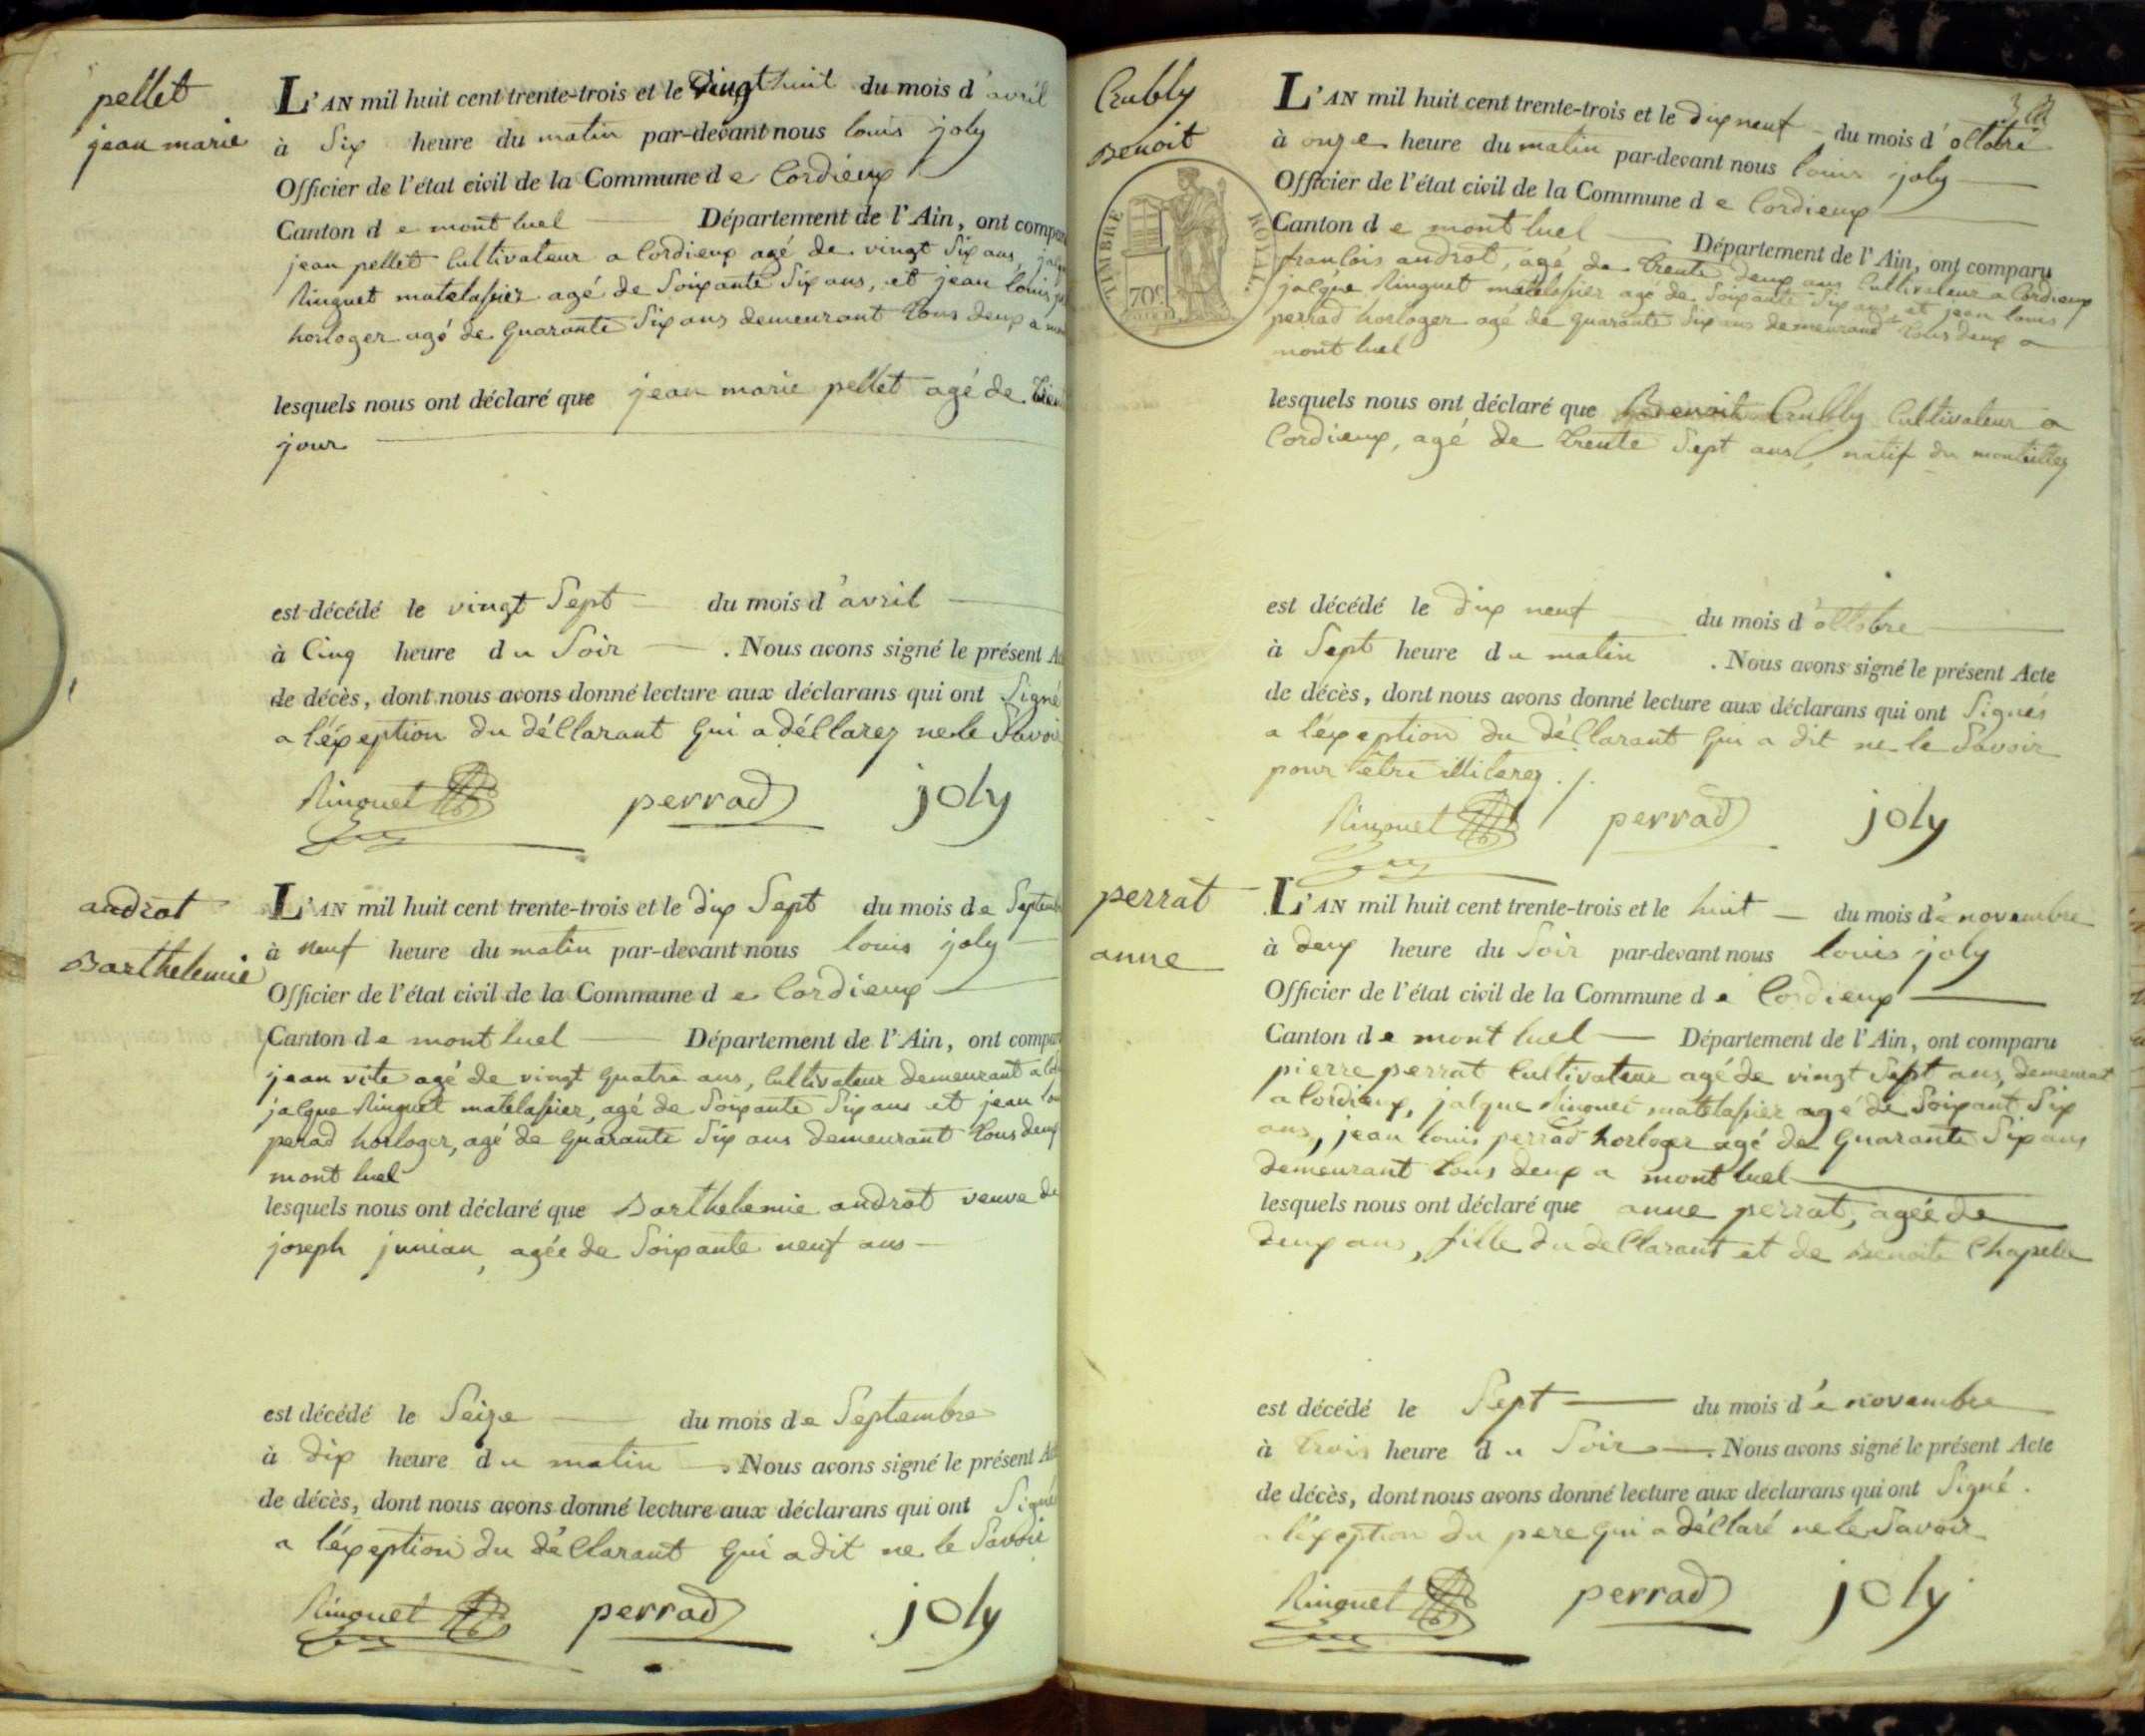 pellet
jean marie
L'AN mil huit cent trente-trois et le vingt huit du mois d'avril
à Six heure du matin par-devant nous louis joly
Officier de l'état civil de la Commune de Cordieux
Canton de mont luel Département de l'Ain, ont compar
jean pellet Cultivateur a Cordieux agé de vingt Six ans,
Ringuet matelassier agé de Soixante Six ans, et jean louis
horloger agé de quarante Six ans demeurant tous deux a
lesquels nous ont déclaré que jean marie pellet agé de
jour
est décédé le vingt Sept du mois d'avril
à Cinq heure du Soir . Nous avons signé le présent
de décès, dont nous avons donné lecture aux déclarans qui ont Signé
a l'éxeption du déClarant qui a déClarez ne le Savoir
Ringuet perrad joly
androt
Barthelemie
L'AN mil huit cent trente-trois et le dix Sept du mois de Septemb
à neuf heure du matin par-devant nous louis joly
Officier de l'état civil de la Commune de Cordieux
Canton de mont luel Département de l'Ain, ont compar
jean vite agé de vingt quatre ans, Cultivateur demeurant a
jaCque Ringuet matelassier, agé de Soixante Six ans et jean lou
perad horloger, agé de quarante Six ans demeurant tous deux
mont luel
lesquels nous ont déclaré que Barthelemie androt veuve de
joseph junian, agée de Soixante neuf ans
est décédé le Seize du mois de Septembre
à dix heure du matin . Nous avons signé le présent
de décès, dont nous avons donné lecture aux déclarans qui ont Signé
a l'éxeption du déClarant qui a dit ne le Savoir
Ringuet perrad joly
Crubly
Benoit
TIMBRE ROYAL
70c
L'AN mil huit cent trente-trois et le dix neuf du mois d'oCtobre
à onze heure du matin par-devant nous louis joly
Officier de l'état civil de la Commune de Cordieux
Canton de mont luel Département de l'Ain, ont comparu
franCois androt, agé de trente deux ans Cultivateur a Cordieux
jaCque Ringuet matelassier agé de Soixante Six ans et jean louis
perrad horloger agé de quarante Six ans demeurand tous deux a
mont luel
lesquels nous ont déclaré que Benoit Crubly Cultivateur a
Cordieux, agé de trente Sept ans, natif du
est décédé le dix neuf du mois d'oCtobre
à Sept heure du matin . Nous avons signé le présent Acte
de décès, dont nous avons donné lecture aux déclarans qui ont Signés
a l'éxeption du déClarant qui a dit ne le Savoir
pour être illiterez ./.
Ringuet perrad joly
perrat
anne
L'AN mil huit cent trente-trois et le huit du mois de novembre
à deux heure du Soir par-devant nous louis joly
Officier de l'état civil de la Commune de Cordieux
Canton de mont luel Département de l'Ain, ont comparu
pierre perrat Cultivateur agé de vingt Sept ans, demeurat
a Cordieux, jaCque Ringuet matelassier agé de Soixant Six
ans, jean louis perrad horloger agé de quarante Six ans
demeurant tous deux a mont luel
lesquels nous ont déclaré que anne perrat, agée de
deux ans, fille du deClarant et de Benoite Chapelle
est décédé le Sept du mois de novembre
à trois heure du Soir . Nous avons signé le présent Acte
de décès, dont nous avons donné lecture aux déclarans qui ont Signé.
a l'éxeption du pere qui a déClaré ne le Savoir
Ringuet perrad joly